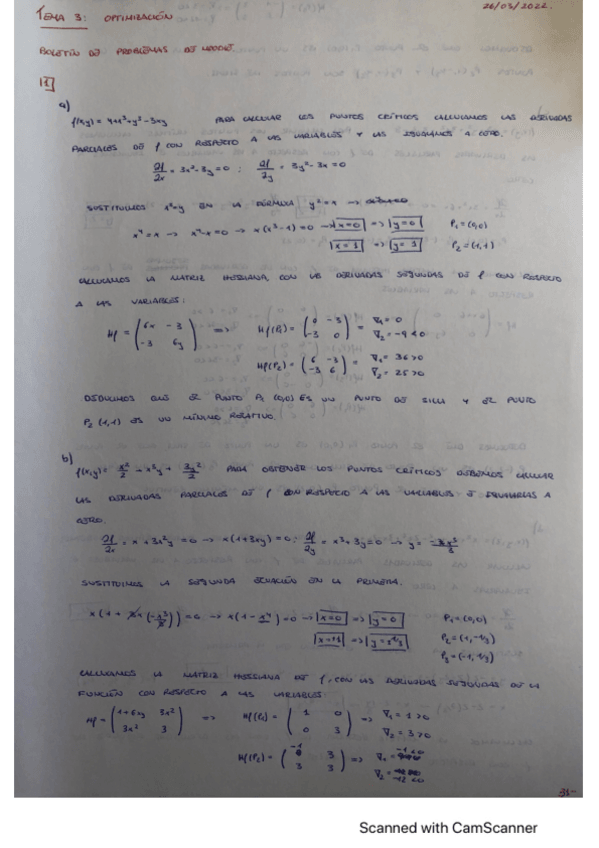 TEMA 3: OPTIMIZACIÓN
26/03/2022
BOLETÍN DE PROBLEMAS DE MOODLE
1
a)
f(x,y) = 4+x³+y³-3xy PARA CALCULAR LOS PUNTOS CRÍTICOS CALCULAMOS LAS DERIVADAS
PARCIALES DE f CON RESPECTO A LAS VARIABLES Y LAS IGUALAMOS A CERO.
∂f/∂x = 3x²-3y=0 ; ∂f/∂y = 3y²-3x=0
SUSTITUIMOS x²=y EN LA FÓRMULA y²=x →
x⁴=x → x⁴-x=0 → x(x³-1)=0 → x=0 => y=0 P₁=(0,0)
x=1 => y=1 P₂=(1,1)
CALCULAMOS LA MATRIZ HESSIANA, CON LAS DERIVADAS SEGUNDAS DE f CON RESPECTO
A LAS VARIABLES:
Hf = (6x -3 / -3 6y) => Hf(P₁) = (0 -3 / -3 0) = ∇₁=0 ∇₂=-9<0
Hf(P₂) = (6 -3 / -3 6) = ∇₁=36>0 ∇₂=25>0
DEDUCIMOS QUE EL PUNTO P₁ (0,0) ES UN PUNTO DE SILLA Y EL PUNTO
P₂ (1,1) ES UN MÍNIMO RELATIVO.
b)
f(x,y) = x²/2 - x³y + 3y²/2 PARA OBTENER LOS PUNTOS CRÍTICOS DEBEMOS CALCULAR
LAS DERIVADAS PARCIALES DE f CON RESPECTO A LAS VARIABLES E IGUALARLAS A
CERO.
∂f/∂x = x+3x²y=0 → x(1+3xy)=0 ; ∂f/∂y = x³+3y=0 → y= -x³/3
SUSTITUIMOS LA SEGUNDA ECUACIÓN EN LA PRIMERA.
x(1+3x(-x³/3))=0 → x(1-x⁴)=0 → x=0 => y=0 P₁=(0,0)
x=±1 => P₂=(1,-1/3)
P₃=(-1,1/3)
CALCULAMOS LA MATRIZ HESSIANA DE f, CON LAS DERIVADAS SEGUNDAS DE LA
FUNCIÓN CON RESPECTO A LAS VARIABLES:
Hf = (1+6xy 3x² / 3x² 3) => Hf(P₁) = (1 0 / 0 3) => ∇₁=1>0 ∇₂=3>0
Hf(P₂) = (-1 3 / 3 3) => ∇₁ -1<0 ∇₂= -12<0
-31-
Scanned with CamScanner